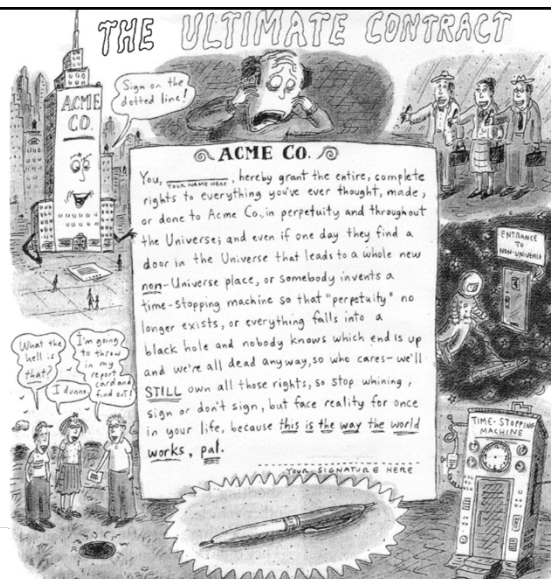 THE ULTIMATE CONTRACT
Sign on the
dotted line!
ACME
CO.
ACME CO.
You, ________, hereby grant the entire, complete
YOUR NAME HERE
rights to everything you've ever thought, made,
or done to Acme Co., in perpetuity and throughout
the Universe; and even if one day they find a
door in the Universe that leads to a whole new
non-Universe place, or somebody invents a
time-stopping machine so that "perpetuity" no
longer exists, or everything falls into a
black hole and nobody knows which end is up
and we're all dead anyway, so who cares- we'll
STILL own all those rights, so stop whining,
sign or don't sign, but face reality for once
in your life, because this is the way the world
works, pal.
YOUR SIGNATURE HERE
ENTRANCE
TO
NON-UNIVERSE
What the
hell is
that?
I dunno.
I'm going
to throw
in my
report
card and
find out!
TIME-STOPPING
MACHINE